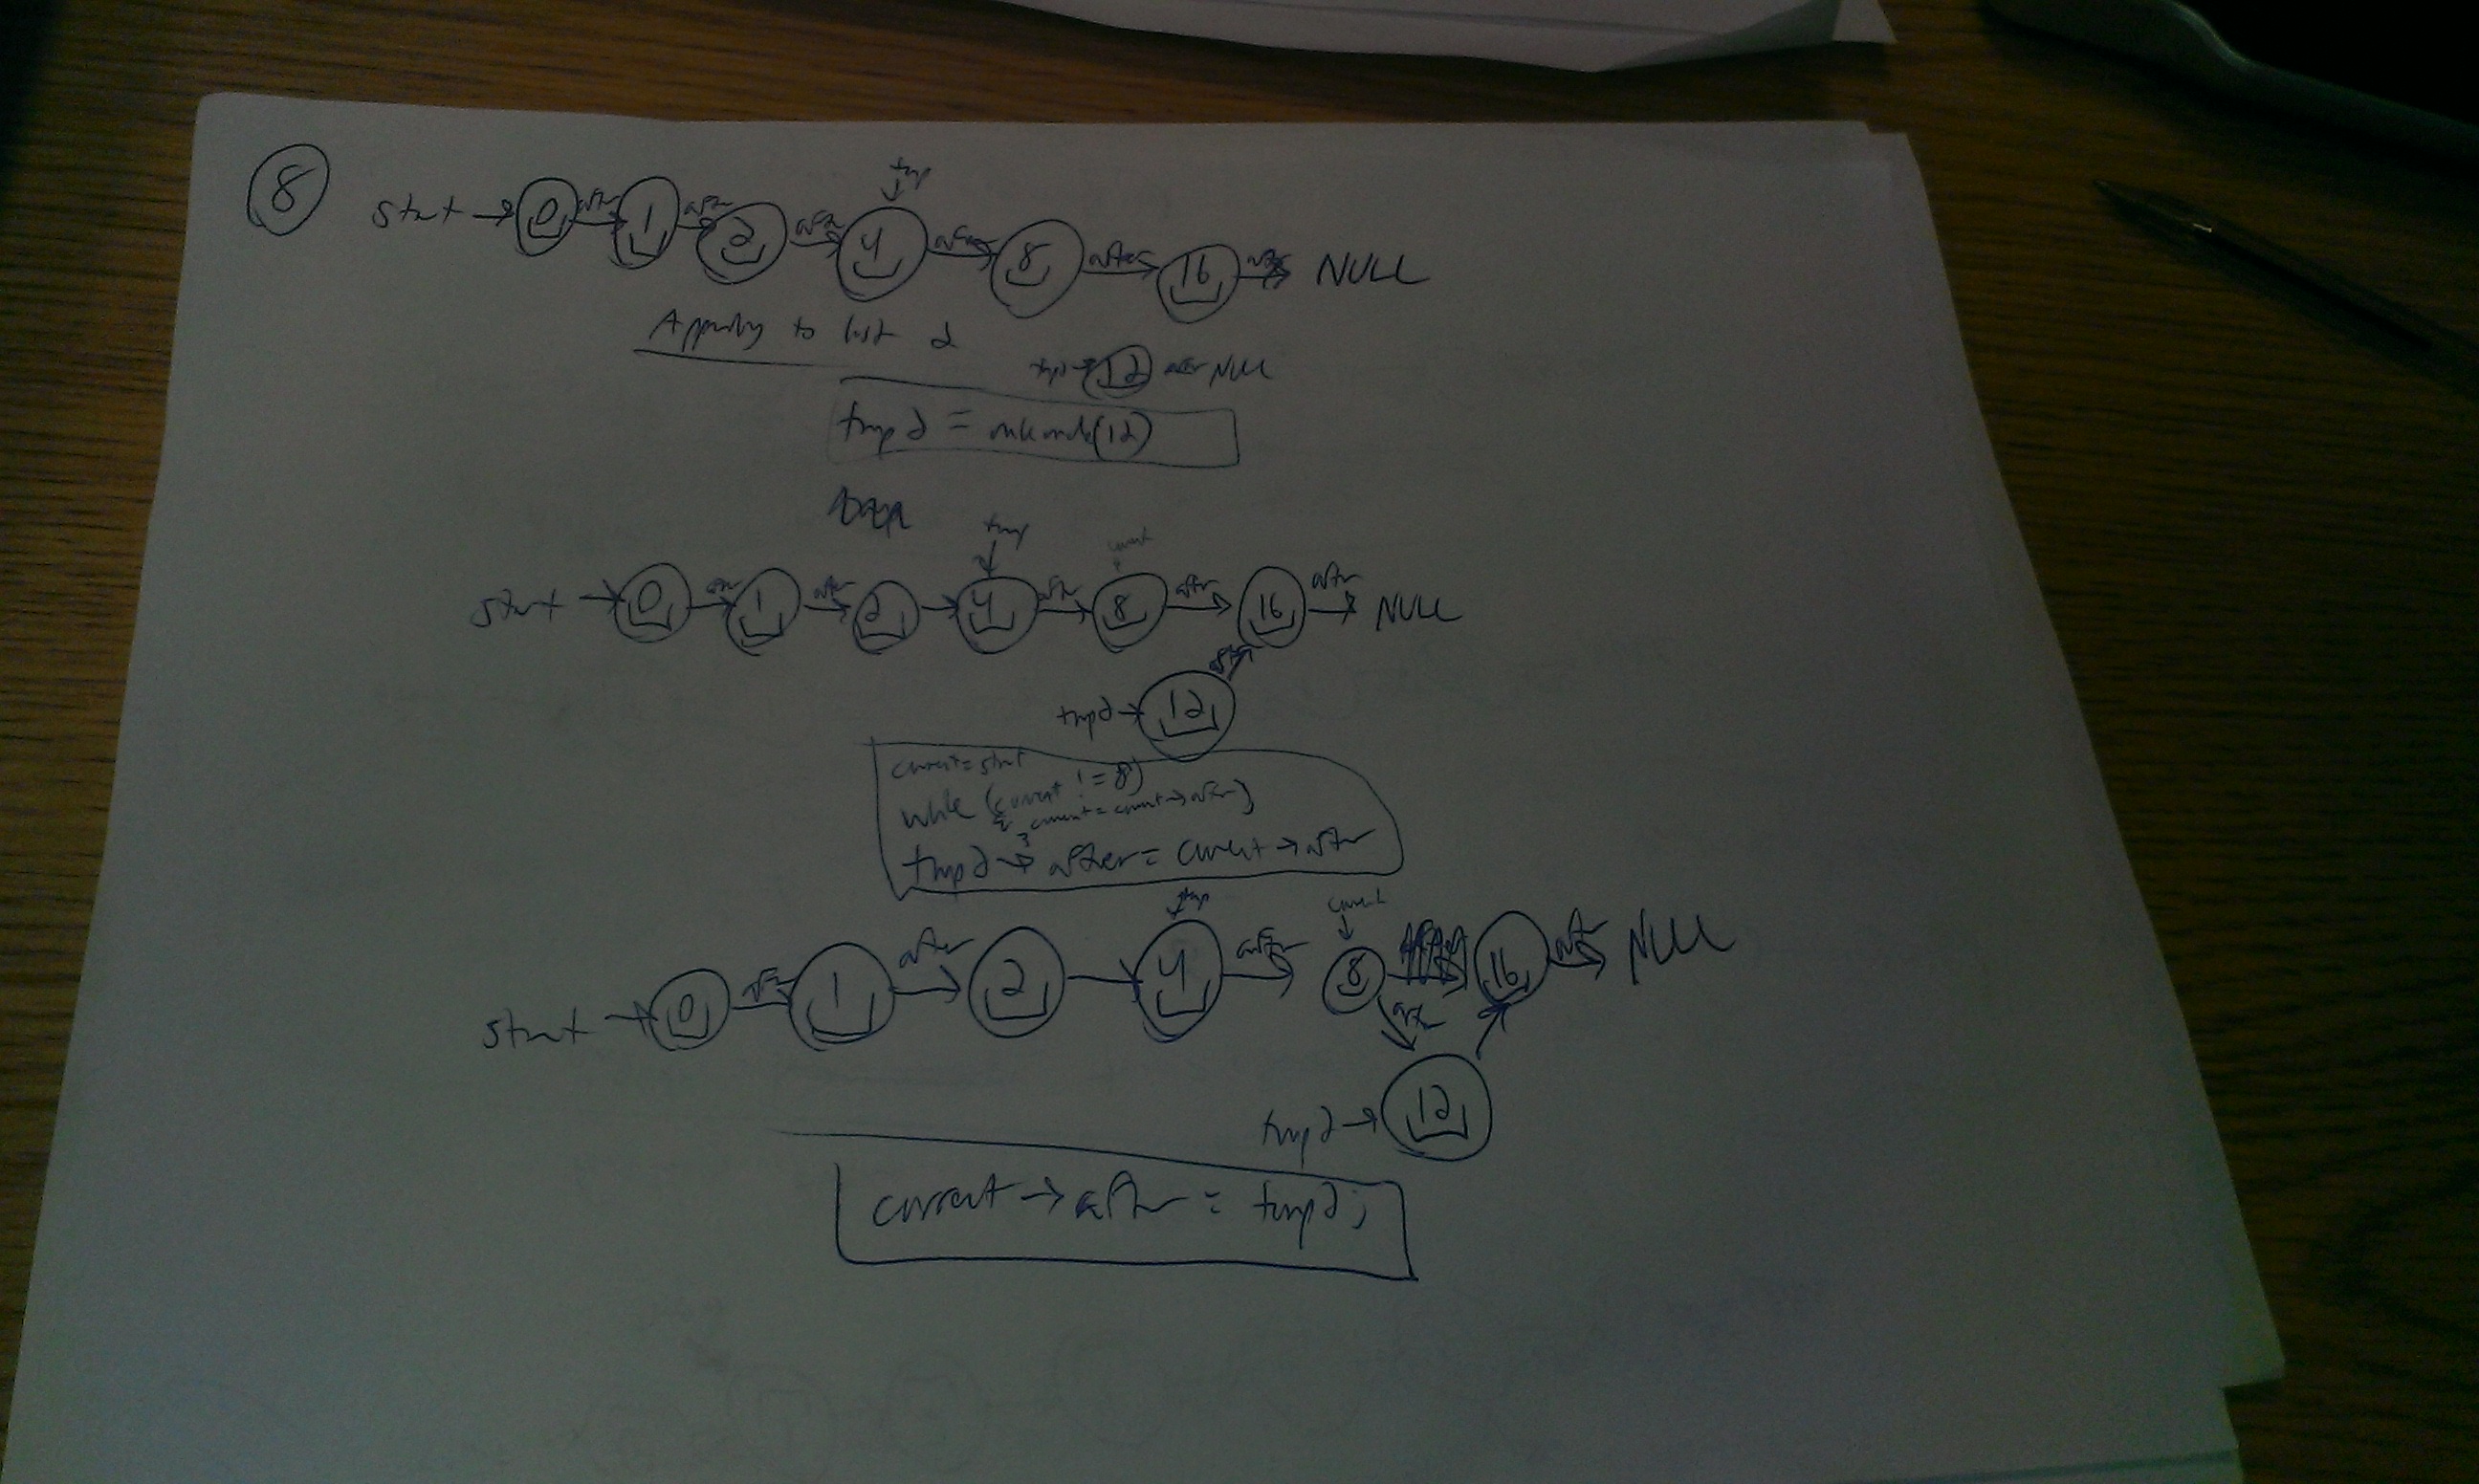 8
tmp
start → 0 after → 1 after → 2 after → 4 after → 8 after → 16 after → NULL
to list 2
tmp2 → 12 after NULL
tmp2 = mknode(12)
tmp current
start → 0 after → 1 after → 2 → 4 after → 8 after → 16 after → NULL
after
tmp2 → 12
current = start
while (current != 8)
{ current = current → after }
tmp2 → after = current → after
tmp current
start → 0 after → 1 after → 2 → 4 after → 8 16 after → NULL
after
tmp2 → 12
current → after = tmp2;